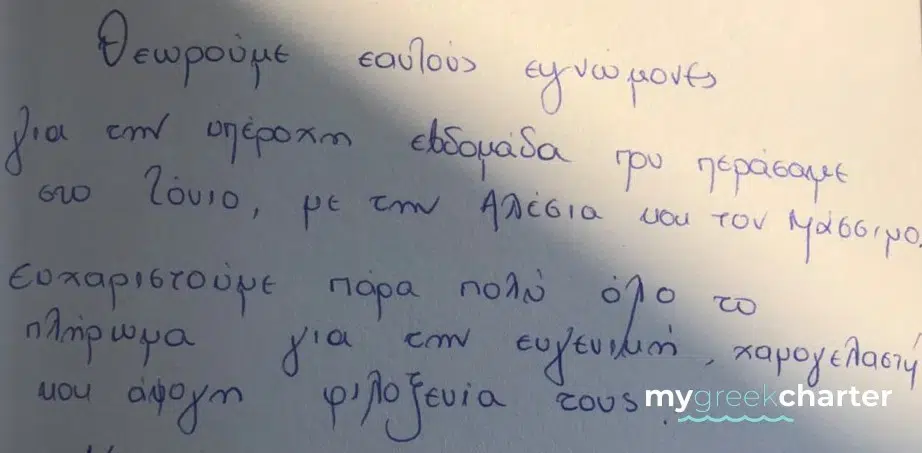 Θεωρούμε εαυτούς εγνώμονες
για την υπέροχη εβδομάδα που περάσαμε
στο Ιόνιο, με την Αλέσια και τον Μάσσιμο.
Ευχαριστούμε πάρα πολύ όλο το
πλήρωμα για την ευγενική, χαμογελαστή
και άψογη φιλοξενία τους.
mygreekcharter